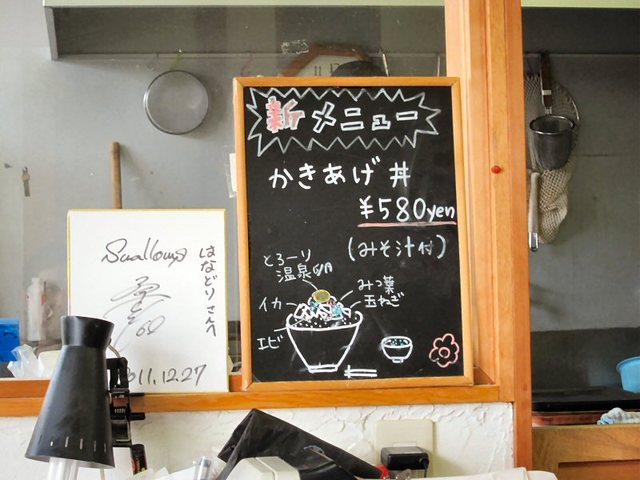 新メニュー
かきあげ丼
¥580yen
(みそ汁付)
とろーり
温泉卵
みつ葉
玉ねぎ
イカ
エビ
Swallows
はなどりさんへ
60
2011.12.27
11 12